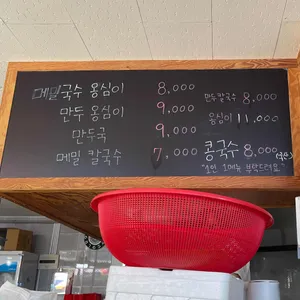 메밀국수 옹심이 8,000
만두 옹심이 9,000
만두국 9,000
메밀 칼국수 7,000
만두칼국수 8,000
옹심이 11,000
콩국수 8,000
*1인 1메뉴 부탁드려요